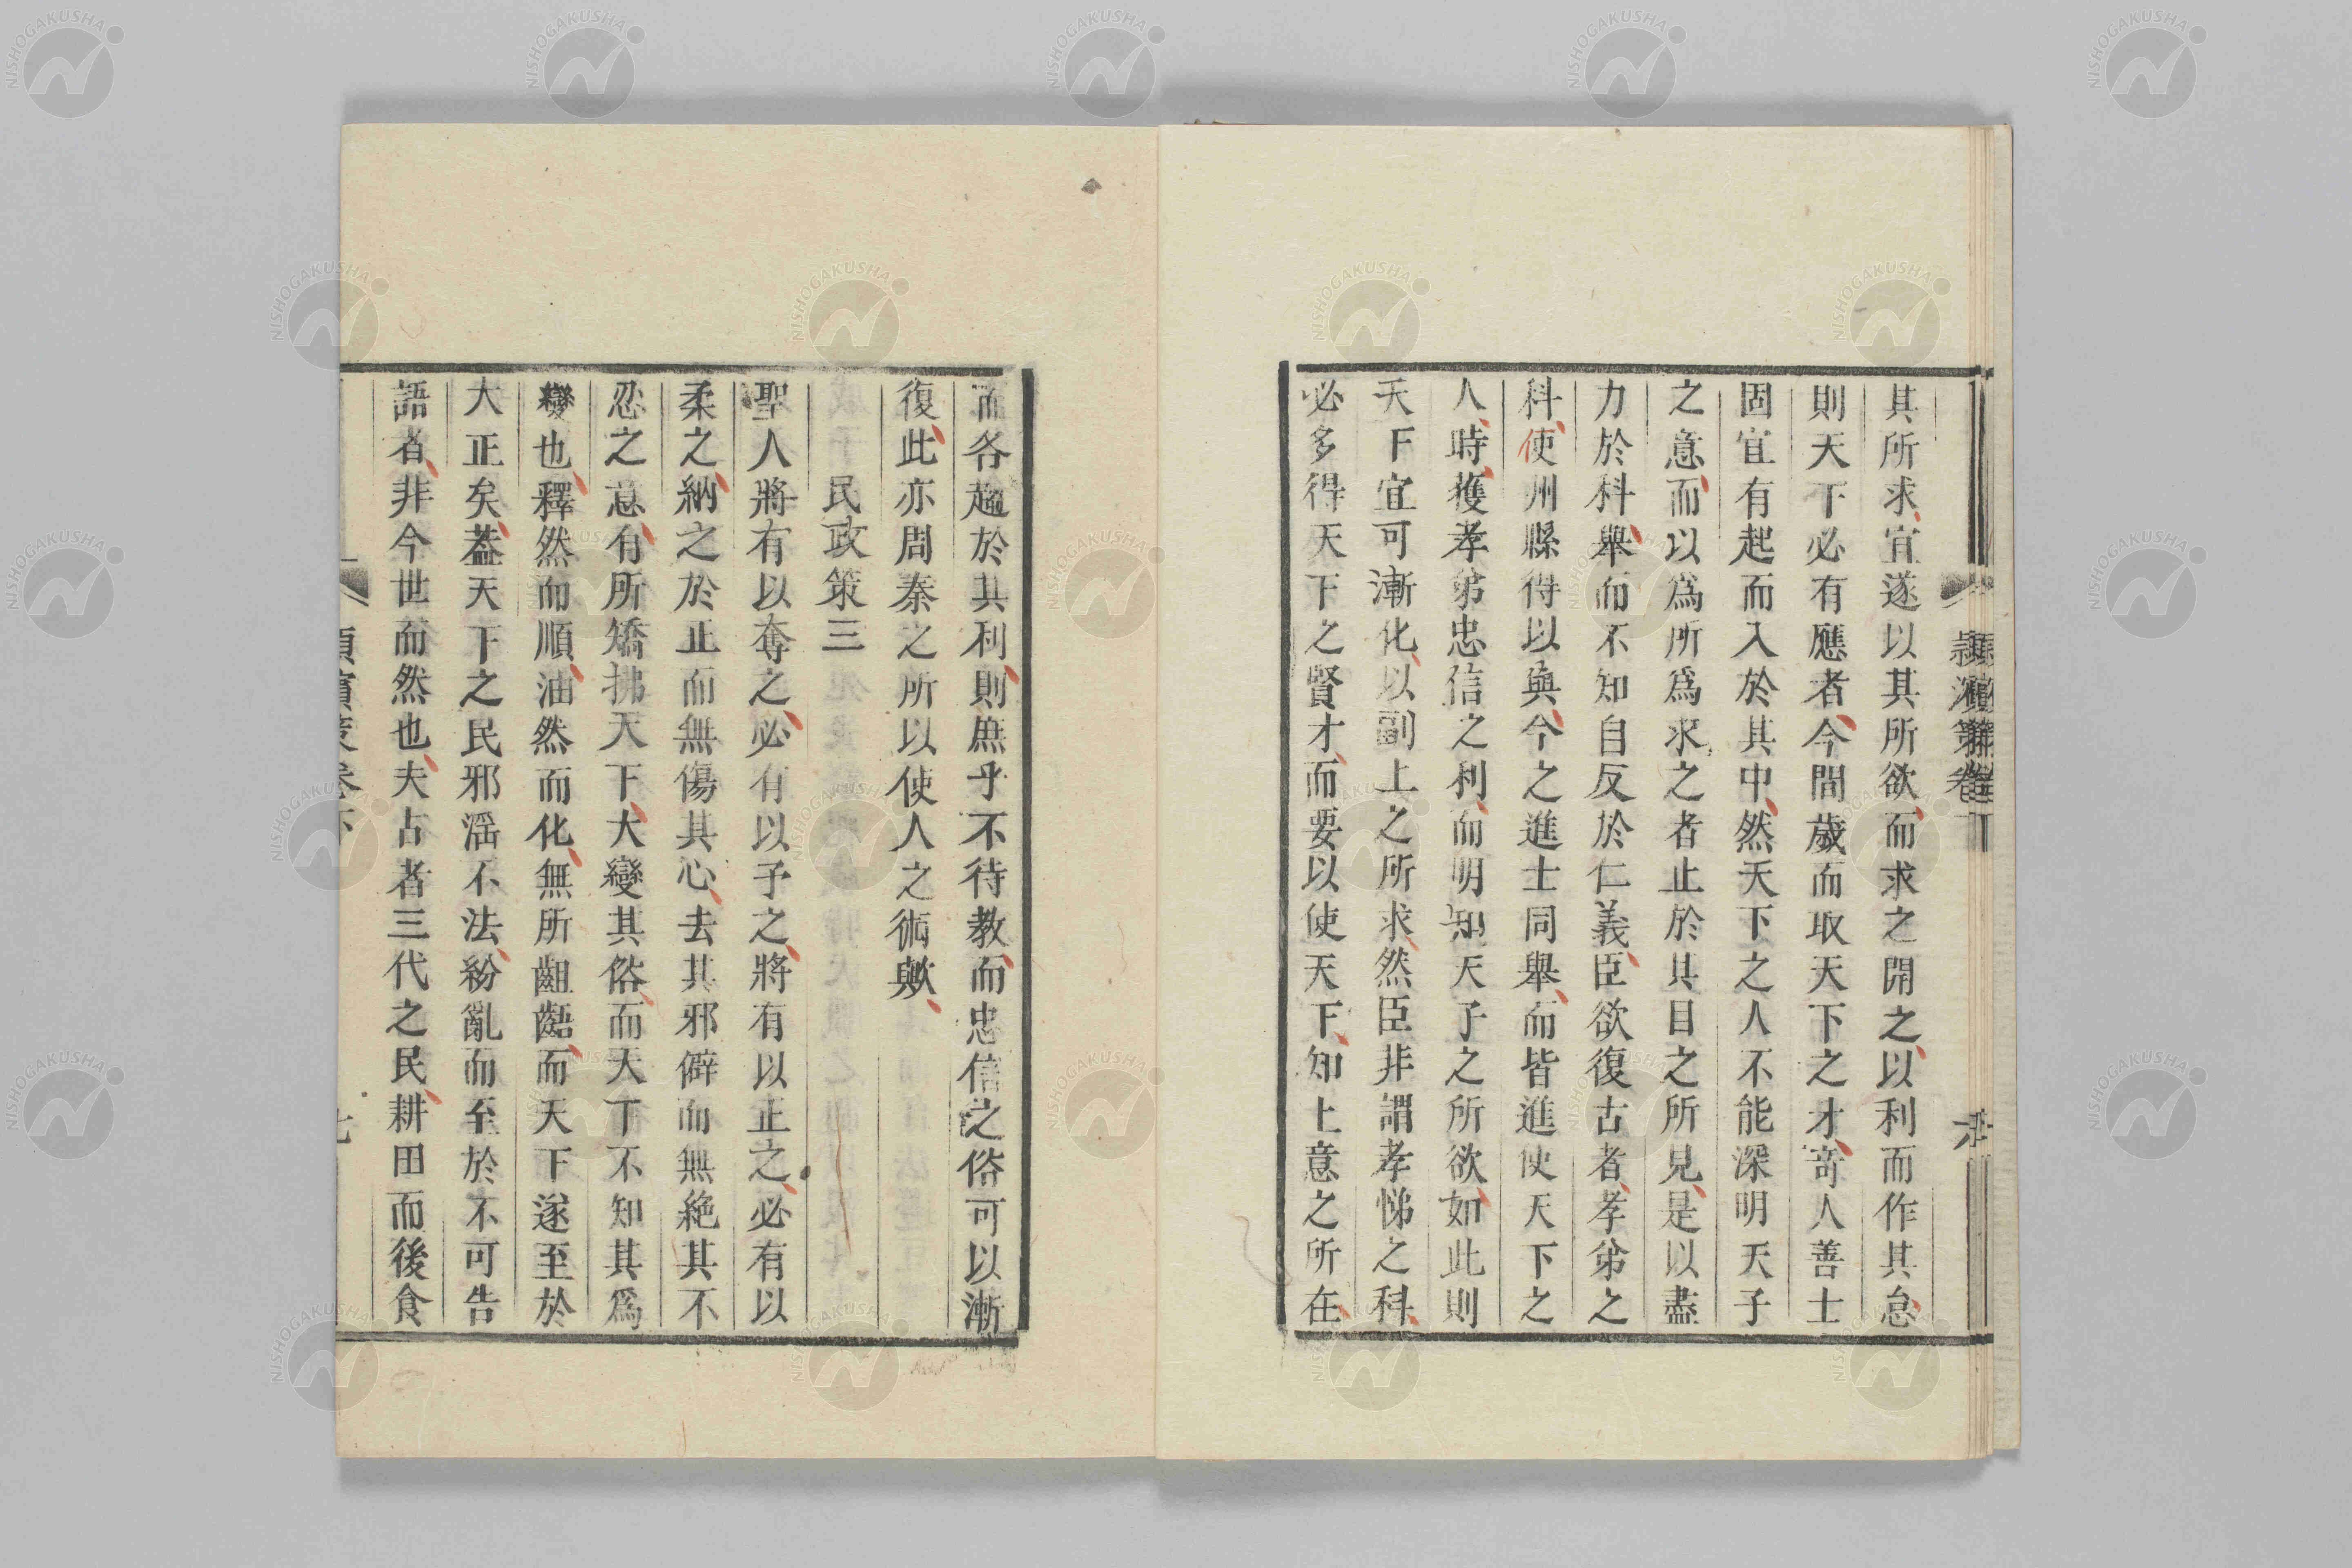 其所求宜遂以其所欲而求之開之以利而作其怠
則天下必有應者今間歲而取天下之才奇人善士
固宜有起而入於其中然天下之人不能深明天子
之意而以爲所爲求之者止於其目之所見是以盡
力於科舉而不知自反於仁義臣欲復古者孝弟之
科使州縣得以與今之進士同舉而皆進使天下之
人時獲孝弟忠信之利而明知天子之所欲如此則
天下宜可漸化以副上之所求然臣非謂孝悌之科
必多得天下之賢才而要以使天下知上意之所在
而各趨於其利則庶乎不待教而忠信之俗可以漸
復此亦周秦之所以使人之術歟
民政策三
聖人將有以奪之必有以予之將有以正之必有以
柔之納之於正而無傷其心去其邪僻而無絶其不
忍之意有所矯拂天下大變其俗而天下不知其爲
變也釋然而順油然而化無所齟齬而天下遂至於
大正矣蓋天下之民邪淫不法紛亂而至於不可告
語者非今世而然也夫古者三代之民耕田而後食
NISHOGAKUSHA